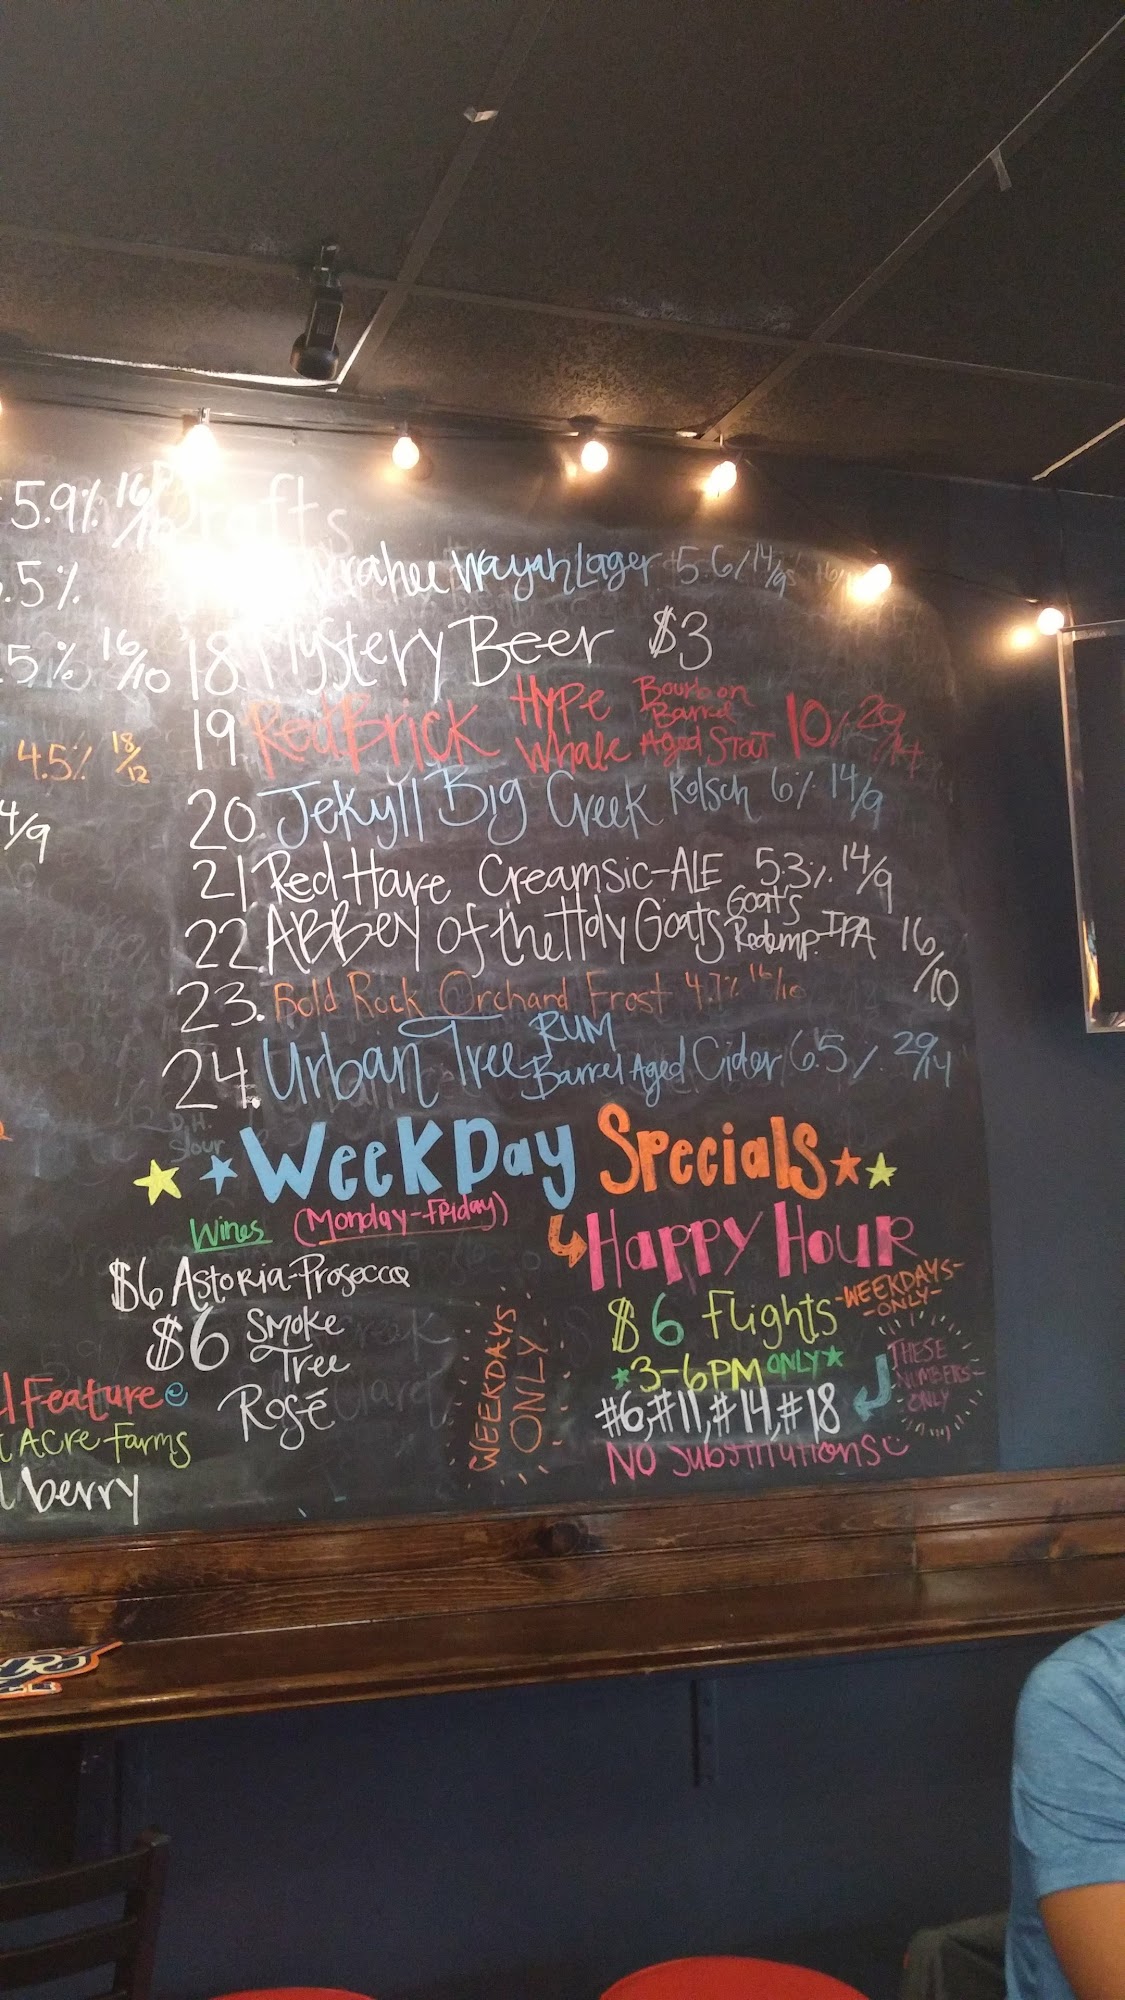 5.9% 16/10
Drafts
.5%
Wayah Lager 5.6% 14/9
5% 16/10
18 Mystery Beer $3
4.5% 18/12
19 Red Brick Hype Whale Bourbon Barrel Aged Stout 10% 29/14
4/9
20. Jekyll Big Creek Kolsch 6% 14/9
21 Red Hare Creamsic-ALE 5.3% 14/9
22. ABBEY of the Holy Goats Goat's Redemp. IPA 16/10
23. Bold Rock Orchard Frost 4.7% 16/10
24. Urban Tree RUM Barrel Aged Cider 6.5% 29/14
D.H.
Sour
WeekDay Specials
Wines (Monday-Friday)
Happy Hour
$6 Astoria-Prosecco
$6 Flights -WEEKDAYS-
-ONLY-
$6 Smoke
Tree
Rosé
WEEKDAYS
ONLY
3-6PM ONLY
#6, #11, #14, #18
THESE
NUMBERS
ONLY
NO Substitutions
l Feature
Acre Farms
berry